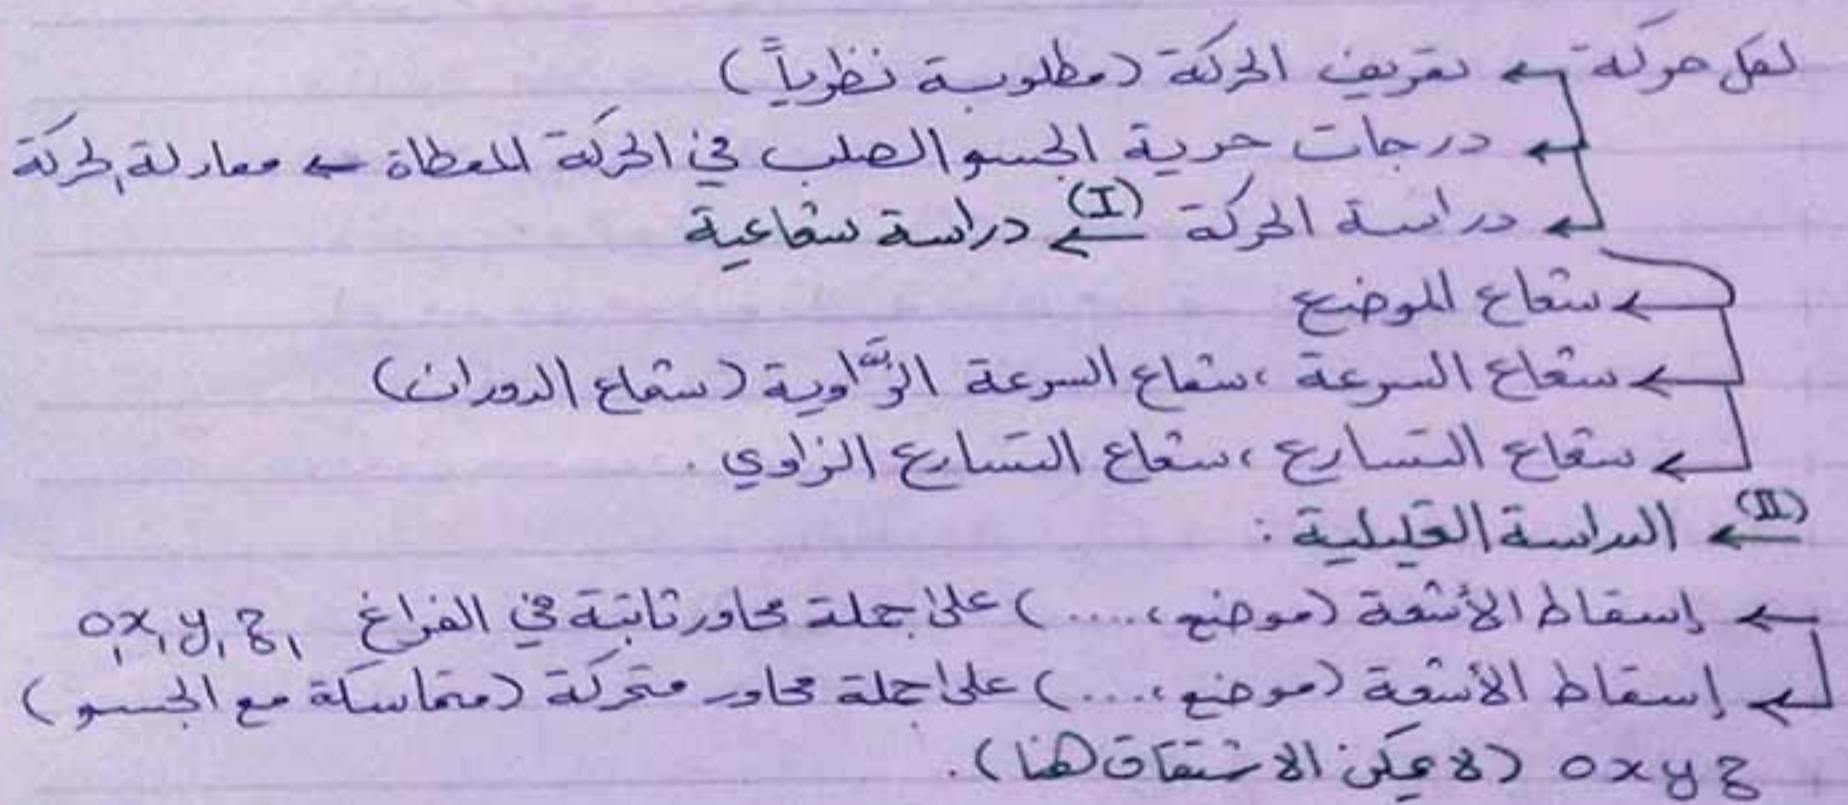 لكل حركة ← تعريف الحركة (مطلوبة نظرياً)
← درجات حرية الجسم الصلب في الحركة المعطاة ← معادلة الحركة
← دراسة الحركة (I) ← دراسة شعاعية
← شعاع الموضع
← شعاع السرعة ، شعاع السرعة الزاوية (شعاع الدوران)
← شعاع التسارع ، شعاع التسارع الزاوي .
(II) ← الدراسة التحليلية :
← إسقاط الأشعة (موضع ، ....) على جملة محاور ثابتة في الفراغ ox₁y₁z₁
← إسقاط الأشعة (موضع ، ....) على جملة محاور متحركة (متماسكة مع الجسم)
oxyz (لا يمكن الاشتقاق هنا).